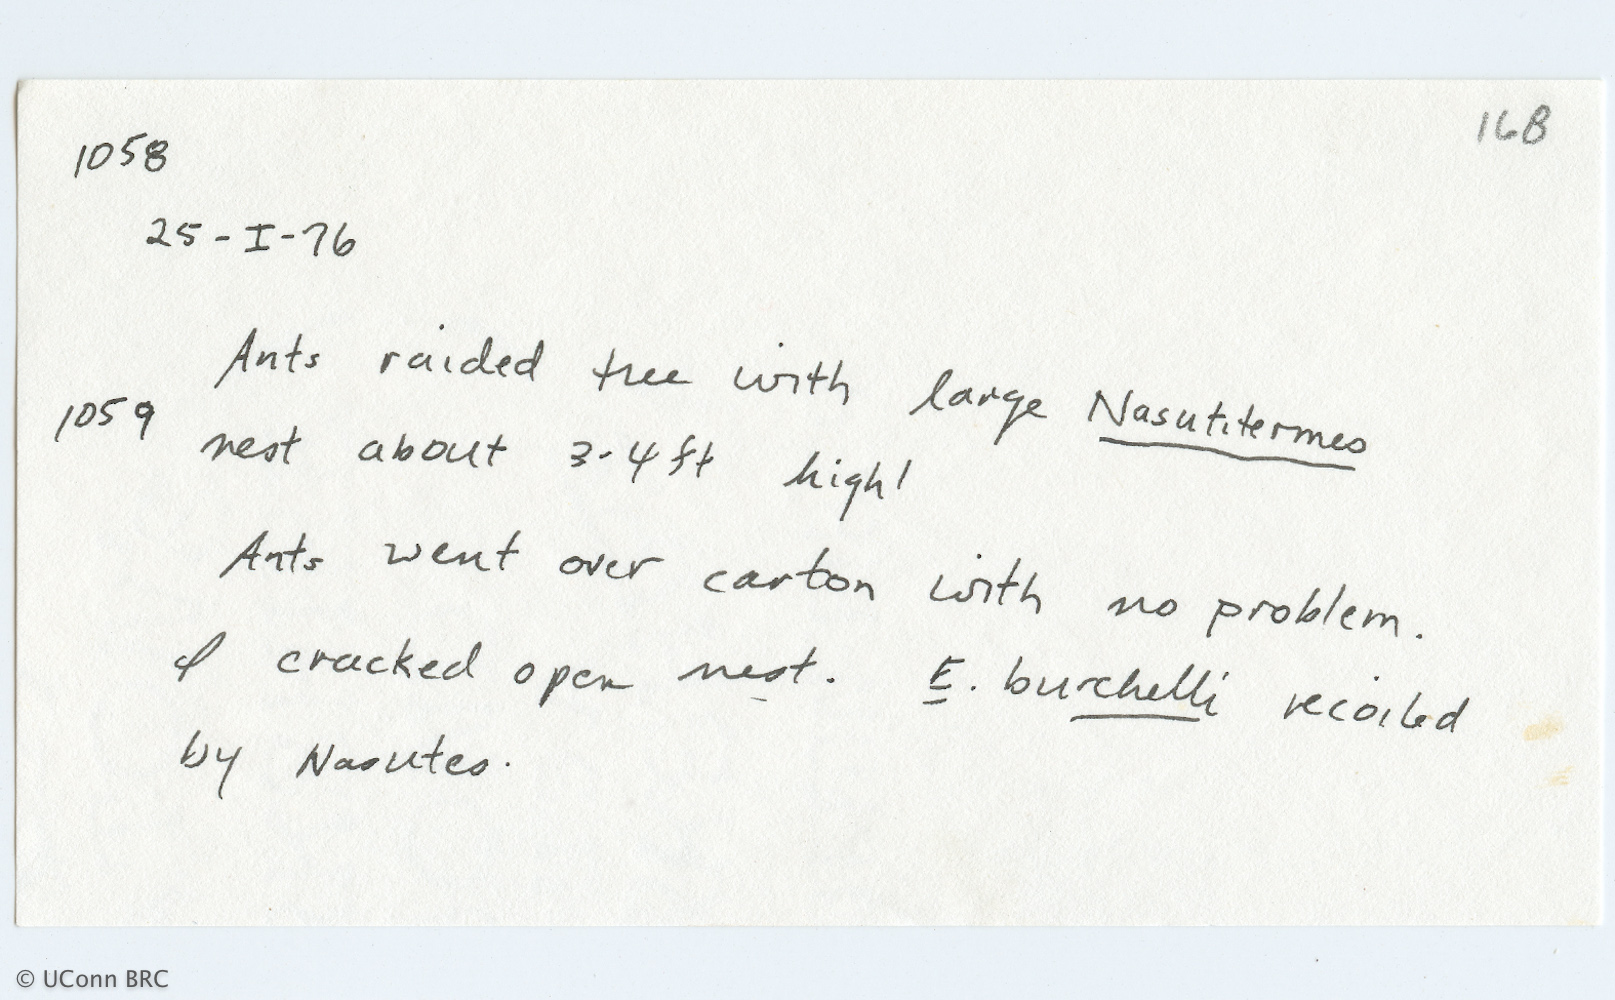 168
1058
25-I-76
Ants raided tree with large Nasutitermes
1059 nest about 3-4 ft high!
Ants went over carton with no problem.
I cracked open nest. E. burchelli recoiled
by Nasutes.
© UConn BRC